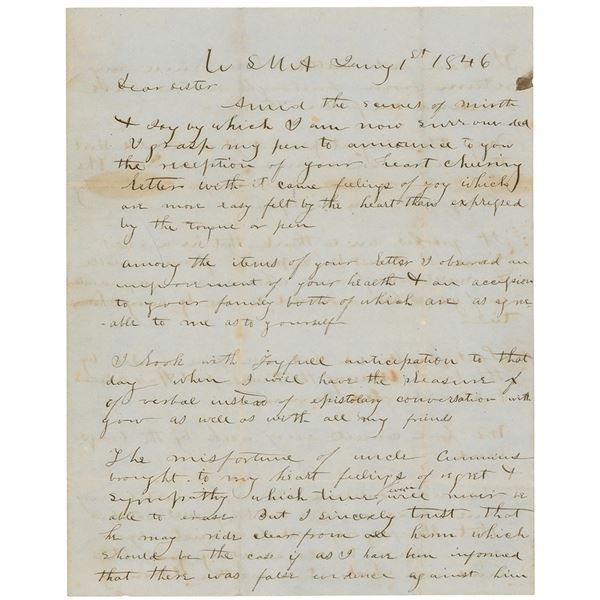 W S M A Jany 1st 1846
Dear Sister
Amid the scenes of mirth
& Joy by which I am now surrounded
I grasp my pen to announce to you
the reception of your heart cheering
letter with it came feelings of joy which
are more easy felt by the heart than expressed
by the tongue or pen
among the items of your letter I observed an
improvement of your health & an accession
to your family both of which are as agree
-able to me as to yourself
I look with Joyfull anticipation to that
day when I will have the pleasure
of verbal instead of epistolary conversation with
you as well as with all my friends
The misfortune of uncle Cummins
brought to my heart feelings of regret &
sympathy which time will never be
able to erase But I sincerly trust that
he may ride clear from all harm which
should be the case if as I have been informed
that there was false evidence against him